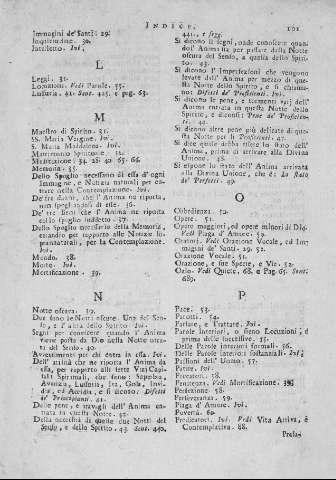 INDICE.
101
Immagini de' Santi. 29.
Inquietudine. 30.
Intelletto. Ivi.
L
Leggi. 31.
Locuzioni. Vedi Parole. 55.
Lussuria. 41. Sent. 425. e pag. 63.
M
Maestro di Spirito. 31.
SS. Maria Vergine. Ivi.
S. Maria Maddalena. Ivi.
Matrimonio Spirituale. 32.
Meditazione. 34. 40. 65. 66.
Memoria. 35.
Dello Spoglio necessario di essa d'ogni
Immagine, e Notizia naturali per entrare nella Contemplazione. Ivi.
De' tre danni, che l'Anima ne riporta,
non spogliandosi di esse. 36.
De' tre beni che l'Anima ne riporta
dello spoglio suddetto. 37.
Dello Spoglio necessario della Memoria,
quando per rapporto alle Notizie soprannaturali, per la Contemplazione.
Ivi.
Mondo. 38.
Morte. Ivi.
Mortificazione. 39.
N
Notte oscura. 39.
Due sono le Notti oscure. Una del Senso, e l'altra dello Spirito. Ivi.
Segni per conoscere quando l'Anima
viene posta da Dio nella Notte oscura
del Senso. 40.
Avvertimenti per chi entra in essa. Ivi.
Dell'utilità che ne ritrae l'Anima da
essa, per rapporto alli sette Vizj Capitali Spirituali, che sono: Superbia,
Avarizia, Lussuria, Ira, Gola, Invidia, ed Accidia, e si dicono: Difetti
de' Principianti. 41.
Delle pene, e travagli dell'Anima entrata in questa Notte. 42.
Della necessità di queste due Notti del
Senso, e dello Spirito. 43. Sent. 440.
441. e segg.
Si dicono li segni, onde conoscere quando l'Anima sta per passare dalla Notte
oscura del Senso, a quella dello Spirito. 43.
Si dicono l'Imperfezioni che vengono
levate dall'Anima per mezzo di questa Notte dello Spirito, e si chiamano: Difetti de' Proficienti. Ivi.
Si dicono le pene, e tormenti dell'Anima entrata in questa Notte dello
Spirito; e si dicono: Pene de' Proficienti. 44.
Si dicono altre pene più delicate di questa Notte per li Proficienti. 47.
Si dice quale debba essere lo stato dell'Anima, prima di arrivare alla Divina
Unione. 48.
Si espone lo stato dell'Anima arrivata
alla Divina Unione, che è: Lo stato
de' Perfetti. 49.
O
Obbedienza. 50.
Opere. 51.
Opere maggiori, ed opere minori di Dio.
Vedi Piaga d'Amore. 59.
Oratorj. Vedi Orazione Vocale, ed Immagini de' Santi. 29. 52.
Orazione Vocale. 51.
Orazione, e sue Specie, e Vie. 52.
Ozio. Vedi Quiete. 68. e Pag. 65. Sent.
689.
P
Pace. 53.
Paesani. 54.
Parlare, e Trattare. Ivi.
Parole Interiori, o sieno Locuzioni, e
prima delle successive. 55.
Delle Parole interiori formali. 56.
Delle Parole interiori sostanziali. Ivi.
Passioni dell'Uomo. 57.
Patire. Ivi.
Peccatori. 58.
Penitenza. Vedi Mortificazione. 39.
Perfezione. 58.
Perseveranza. 59.
Piaga d'Amore. Ivi.
Povertà. 60.
Predicatori. Ivi. Vedi Vita Attiva, e
Contemplativa. 88.